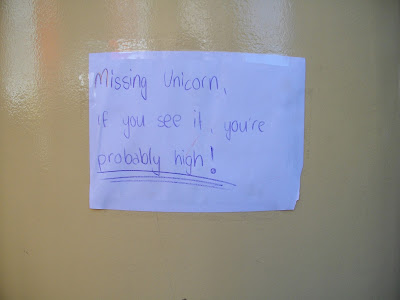 Missing Unicorn,
if you see it, you're
probably high!